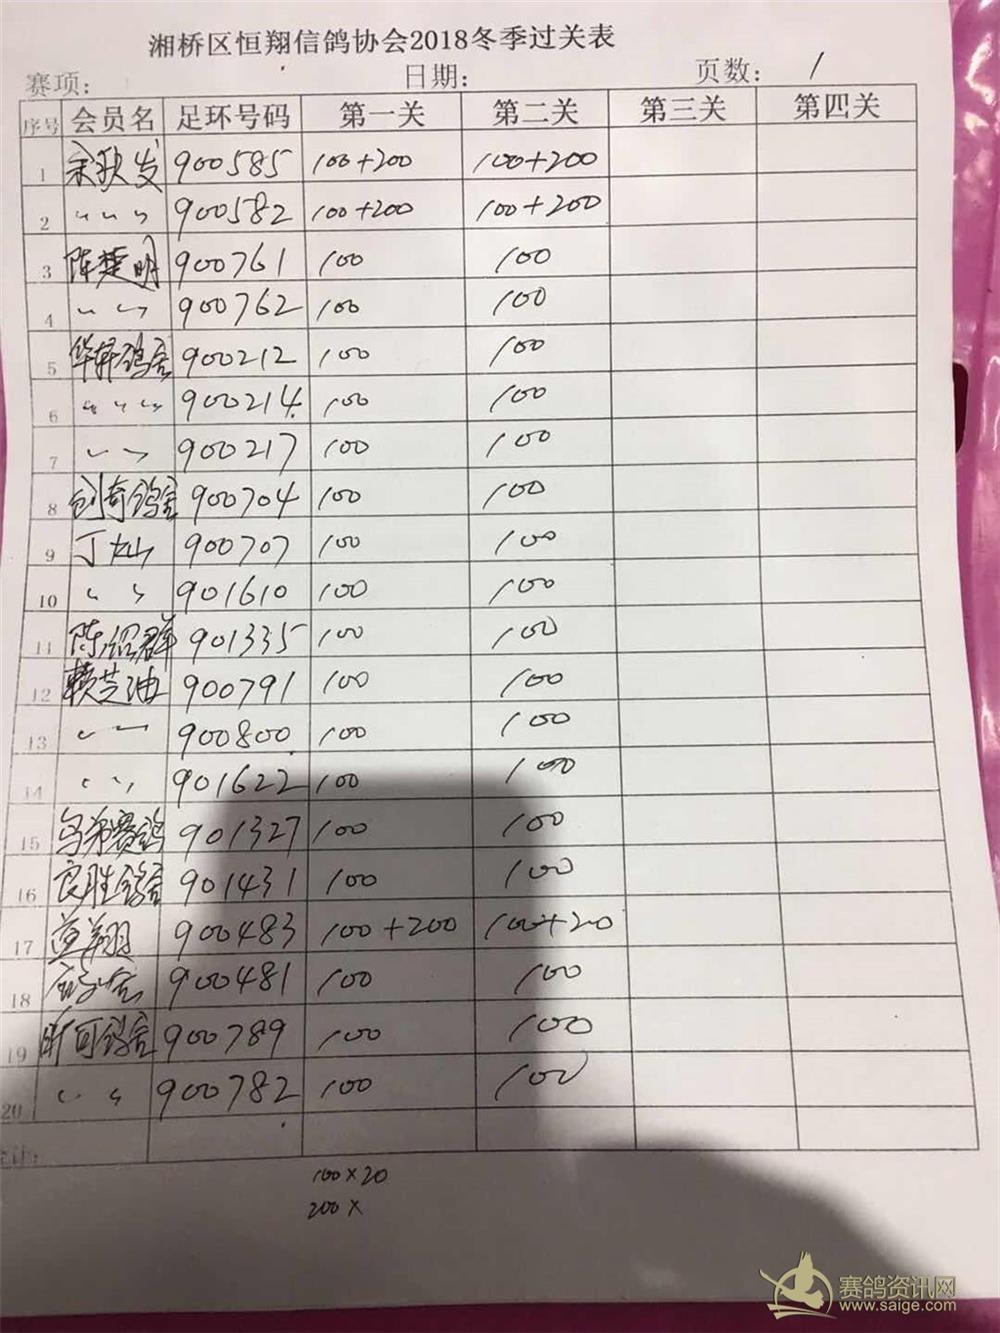 湘桥区恒翔信鸽协会2018冬季过关表
赛项： 日期： 页数： 1
序号 会员名 足环号码 第一关 第二关 第三关 第四关
1 余秋发 900585 100+200 100+200
2 〃 〃 〃 900582 100+200 100+200
3 陈楚明 900761 100 100
4 〃 〃 900762 100 100
5 华昇鸽舍 900212 100 100
6 〃 〃 〃 900214 100 100
7 〃 〃 900217 100 100
8 创奇鸽舍 900704 100 100
9 丁灿 900707 100 100
10 〃 〃 901610 100 100
11 陈绍群 901335 100 100
12 赖芝油 900791 100 100
13 〃 〃 900800 100 100
14 〃 〃 901622 100 100
15 兄弟赛鸽 901327 100 100
16 良胜鸽舍 901431 100 100
17 翔 900483 100+200 100+20
18 900481 100 100
19 昕可鸽舍 900789 100 100
20 〃 〃 900782 100 100
合计：
100×20
200×
赛鸽资讯网
www.saige.com